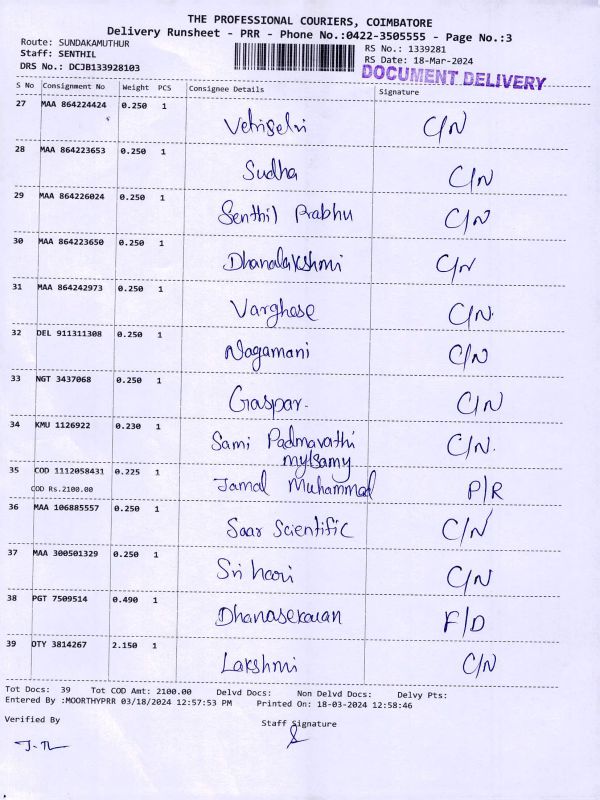 THE PROFESSIONAL COURIERS, COIMBATORE
Delivery Runsheet - PRR - Phone No.:0422-3505555 - Page No.:3
Route: SUNDAKAMUTHUR
Staff: SENTHIL
DRS No.: DCJB133928103
RS No.: 1339281
RS Date: 18-Mar-2024
DOCUMENT DELIVERY
S No Consignment No Weight PCS Consignee Details Signature
27 MAA 864224424 0.250 1 Vetriselvi C/N
28 MAA 864223653 0.250 1 Sudha C/N
29 MAA 864226024 0.250 1 Senthil Prabhu C/N
30 MAA 864223650 0.250 1 Dhanalakshmi C/N
31 MAA 864242973 0.250 1 Varghese C/N.
32 DEL 911311308 0.250 1 Nagamani C/N
33 NGT 3437068 0.250 1 Gaspar. C/N
34 KMU 1126922 0.230 1 Sami Padmavathi C/N.
mylsamy
35 COD 1112058431 0.225 1 Jamal Muhammad P/R
COD Rs.2100.00
36 MAA 106885557 0.250 1 Saar Scientific C/N
37 MAA 300501329 0.250 1 Sri hari C/N
38 PGT 7509514 0.490 1 Dhanasekaran F/D
39 OTY 3814267 2.150 1 Lakshmi C/N
Tot Docs: 39 Tot COD Amt: 2100.00 Delvd Docs: Non Delvd Docs: Delvy Pts:
Entered By :MOORTHYPRR 03/18/2024 12:57:53 PM Printed On: 18-03-2024 12:58:46
Verified By
Staff Signature